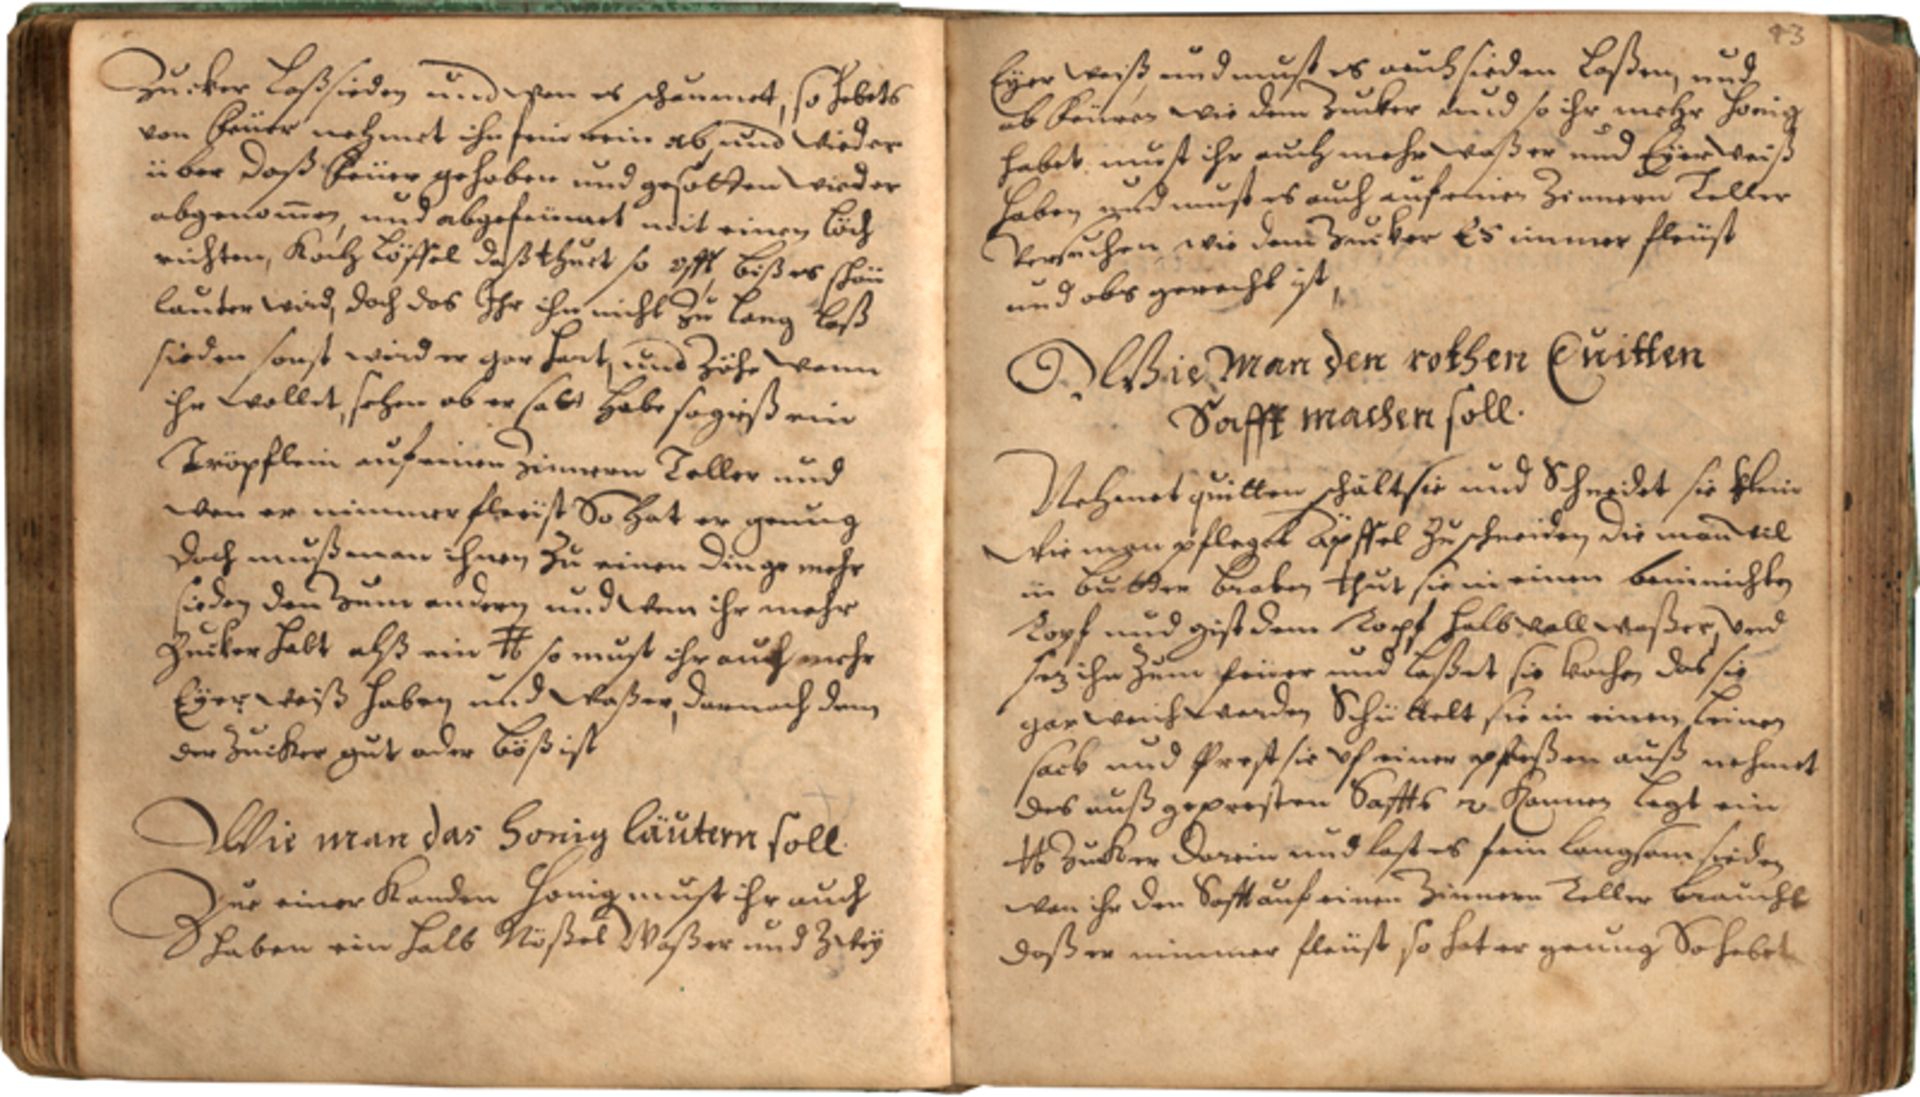 Zucker Laß sieden und wen es schaumet, so hebets
von feüer nehmet ihn fein rein ab, und wieder
über daß feüer gehoben und gesotten wieder
abgenomen, und abgefeümet mit einen löch
richten, Koch Löffel daß thuet so offt, biß es schön
lauter wird, doch das Ihr ihn nicht zu lang laß
sieden sonst wird er gar hart, und Zähe wenn
ihr wollet, sehen ob er satt habe so gieß ein
Tröpflein auf einen Zinnern Teller und
wen er nimmer fleüst So hat er genug
doch muß man ihnen Zu einen dinge mehr
sieden den Zum andern und wen ihr mehr
Zucker habt alß ein ℔ so must ihr auch mehr
Eyer weiß haben und waßer, darnach dem
der Zucker gut oder böß ist
Wie man das Honig läutern soll.
Zue einer Kanden Honig must ihr auch
haben ein halb Nößel Waßer und Zwey
93
Eÿer weiß, und must es auch sieden Laßen, und
ab feümen wie dem Zucker und so ihr mehr Honig
habet must ihr auch mehr waßer und Eÿer weiß
haben und must es auch auf einen Zinnern Teller
versuchen wie dem Zucker Es immer fleüst
und obs gerecht ist,
Wie Man den rothen Cuitten
Safft machen soll.
Nehmet quitten schält sie und Schneidet sie klein
wie man pfleget äpffel Zu schneiden die man wil
in butter braten thut sie in einen
Topf und gist dem Topf halb voll waßer, und
sez ihn Zum feüer und Laßet sie kochen das sie
gar weich werden Schüttelt sie in einen Leinen
sack und Prest sie uf einer preßen auß nehmet
des auß gepresten Saffts 2 Kannen legt ein
℔ Zucker darein und last es fein langsam sieden
wen ihr den Safft auf einen Zinnern Teller braucht
daß er nimmer fleüst so hat er genug So hebet